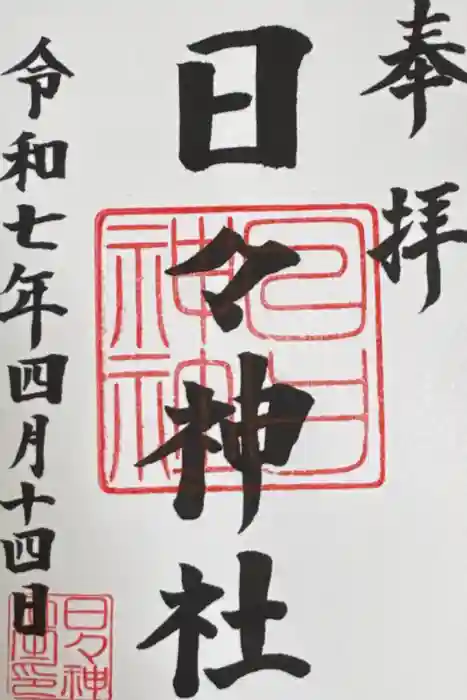 奉拝
日々神社
令和七年四月十四日
日日神社